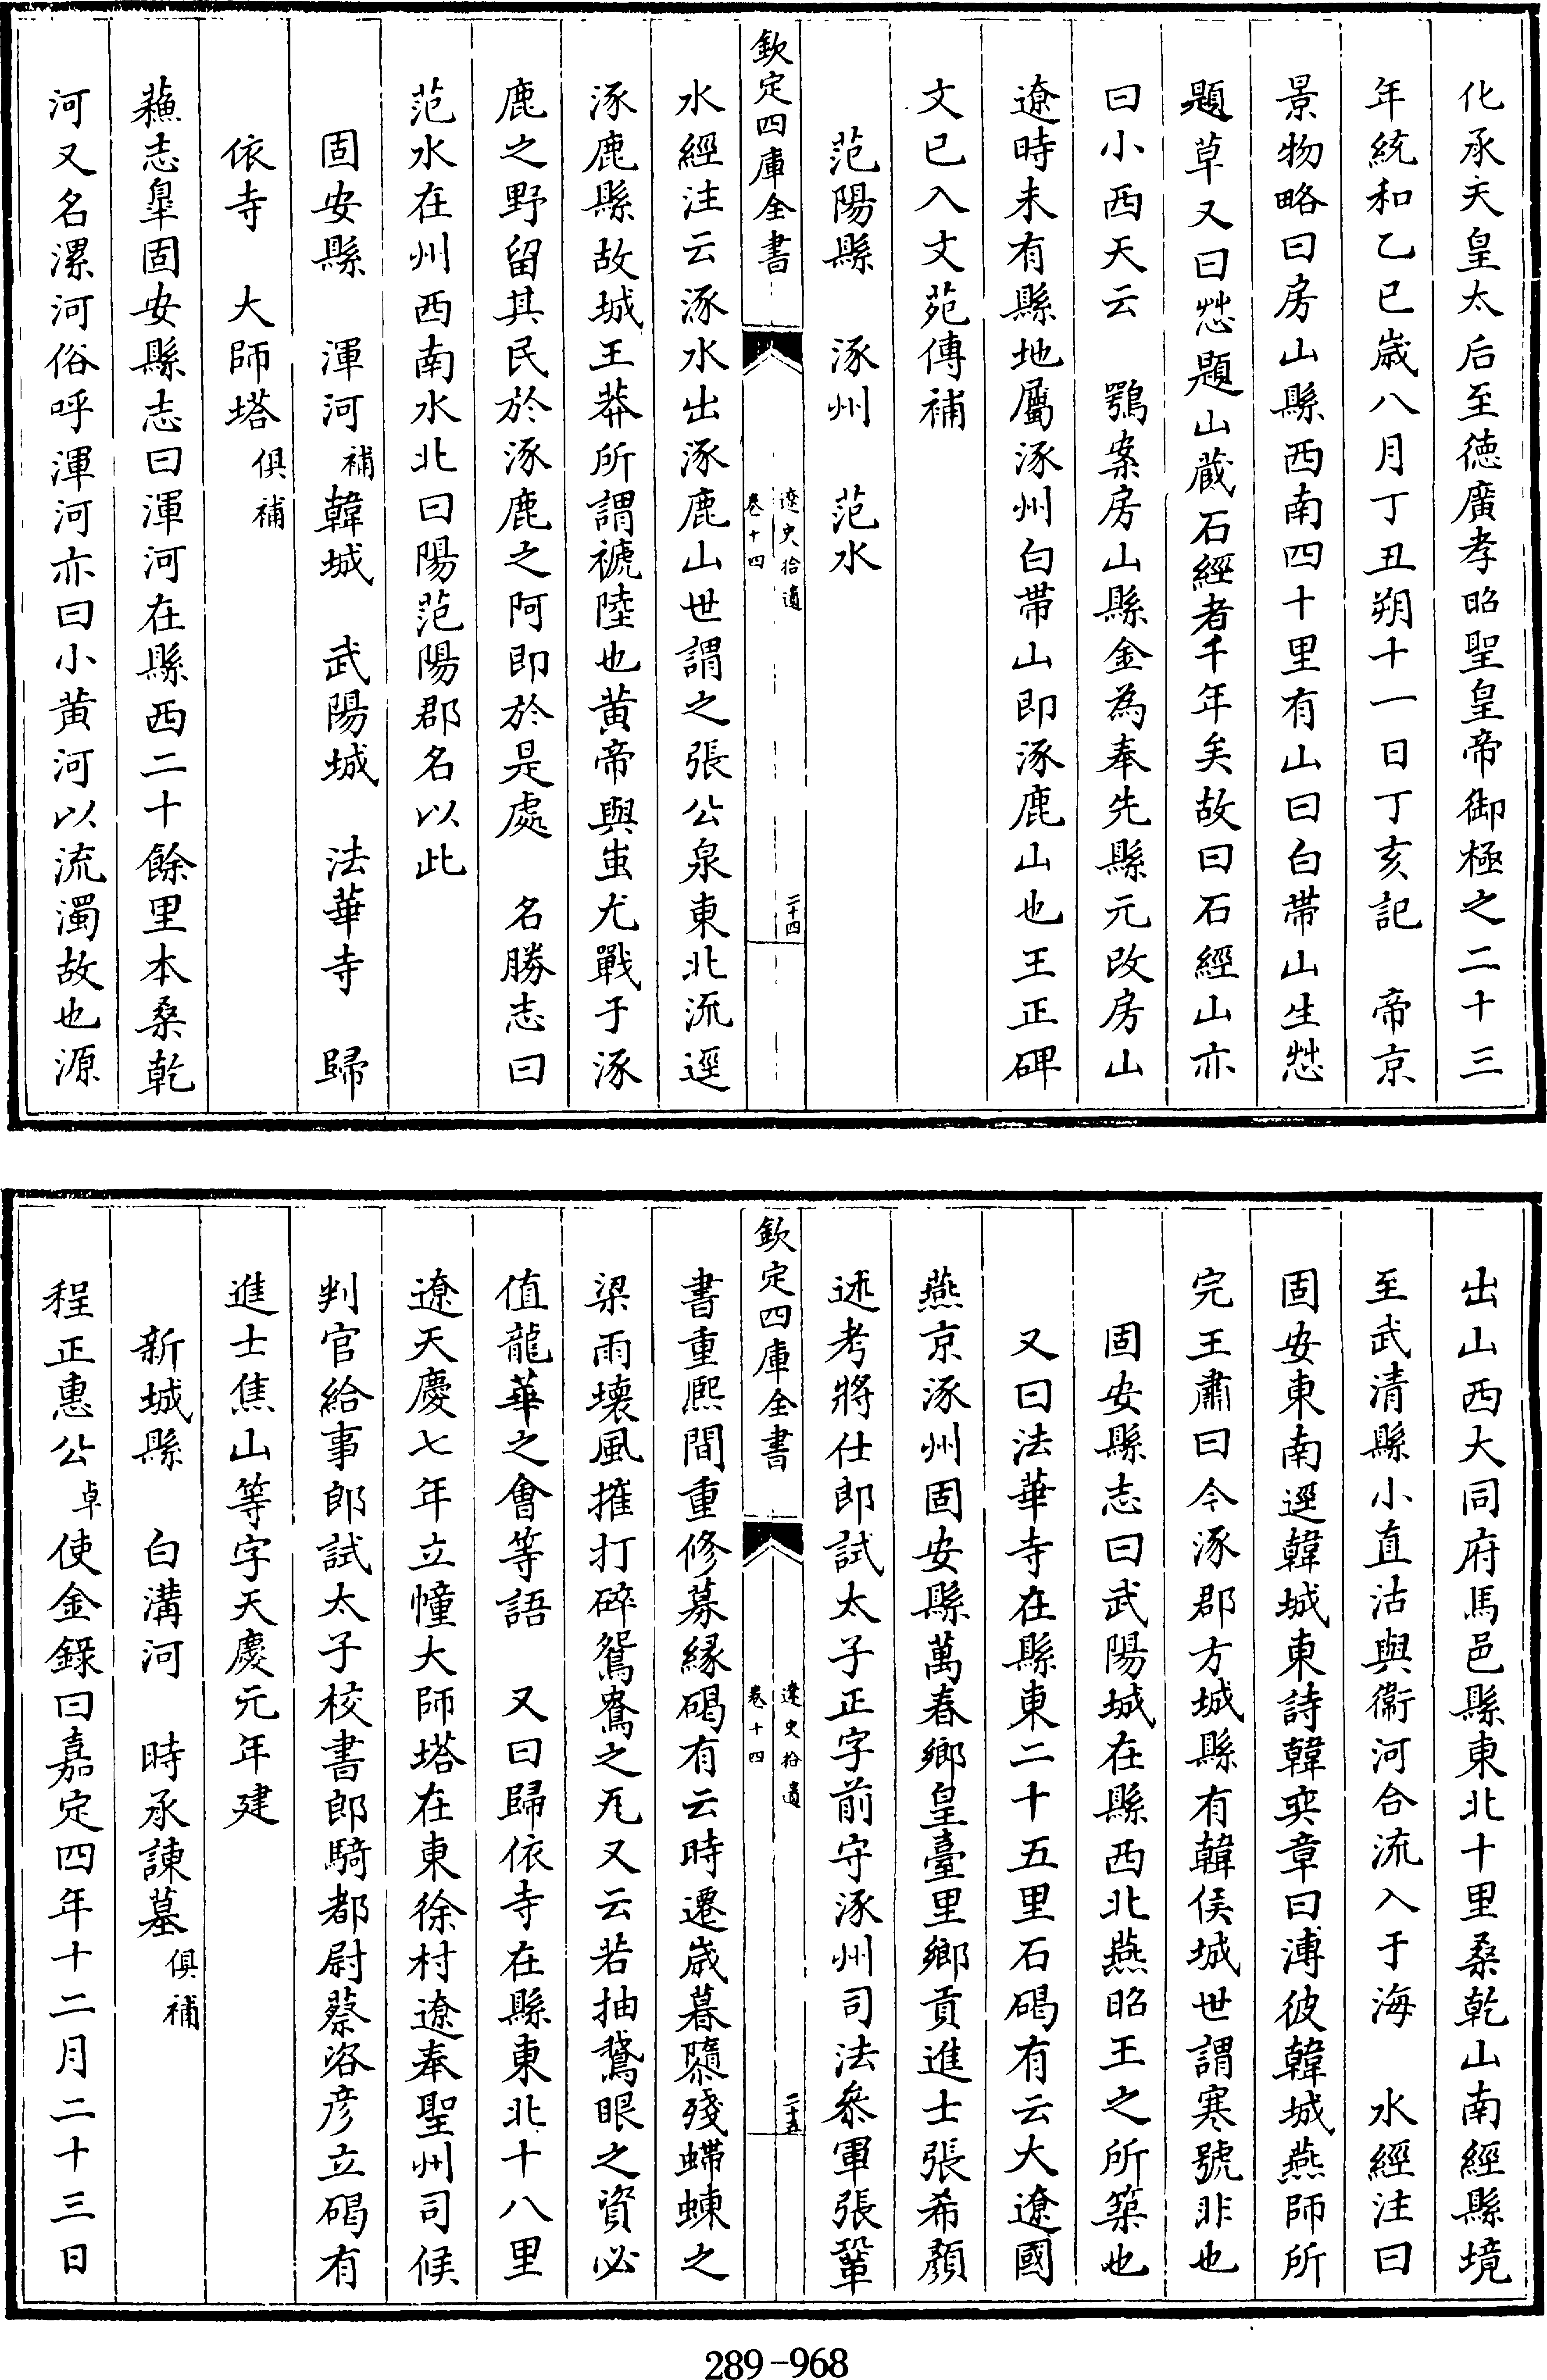 化承天皇太后至徳廣孝昭聖皇帝御極之二十三
年統和乙巳嵗八月丁丑朔十一日丁亥記　帝京
景物略曰房山縣西南四十里有山曰白帶山生𦶜
題草又曰𦶜題山藏石經者千年矣故曰石經山亦
曰小西天云　鶚案房山縣金為奉先縣元改房山
遼時未有縣地屬涿州白帶山即涿鹿山也王正碑
文已入文苑傳補
范陽縣　涿州　范水
欽定四庫全書
遼史拾遺
卷十四
二十四
水經注云涿水出涿鹿山世謂之張公泉東北流逕
涿鹿縣故城王莽所謂褫陸也黄帝與蚩尤戰于涿
鹿之野留其民於涿鹿之阿即於是處　名勝志曰
范水在州西南水北曰陽范陽郡名以此
固安縣　渾河補韓城　武陽城　法華寺　歸
依寺　大師塔俱補
蘓志臯固安縣志曰渾河在縣西二十餘里本桑乾
河又名漯河俗呼渾河亦曰小黄河以流濁故也源
出山西大同府馬邑縣東北十里桑乾山南經縣境
至武清縣小直沽與衞河合流入于海　水經注曰
固安東南逕韓城東詩韓奕章曰溥彼韓城燕師所
完王肅曰今涿郡方城縣有韓侯城世謂寒號非也
固安縣志曰武陽城在縣西北燕昭王之所築也
又曰法華寺在縣東二十五里石碣有云大遼國
燕京涿州固安縣萬春鄉皇臺里鄉貢進士張希顏
述考將仕郎試太子正字前守涿州司法叅軍張鞏
欽定四庫全書
遼史拾遺
卷十四
二十五
書重熙間重修募縁碣有云時遷嵗暮隳殘螮蝀之
梁雨壊風摧打碎鴛鴦之尫又云若抽鵞眼之資必
值龍華之會等語　又曰歸依寺在縣東北十八里
遼天慶七年立幢大師塔在東徐村遼奉聖州司候
判官給事郎試太子校書郎騎都尉蔡洺彦立碣有
進士焦山等字天慶元年建
新城縣　白溝河　時承諫墓俱補
程正惠公卓使金錄曰嘉定四年十二月二十三日
289-968